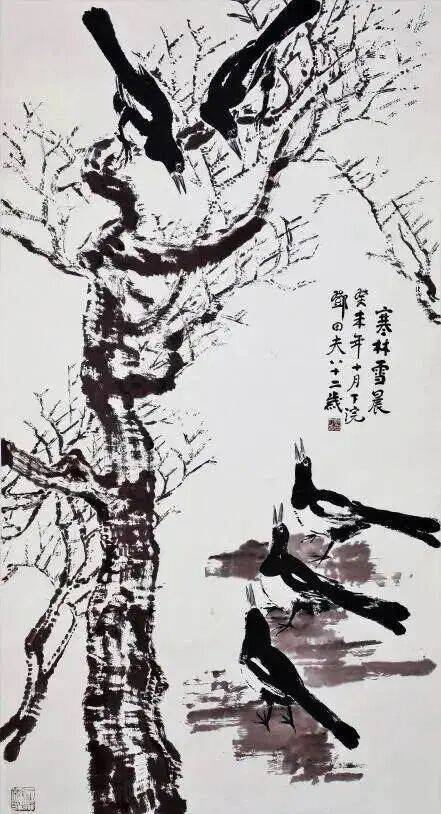 寒林雪晨
癸未年十月下浣
鄧田夫八十二歲